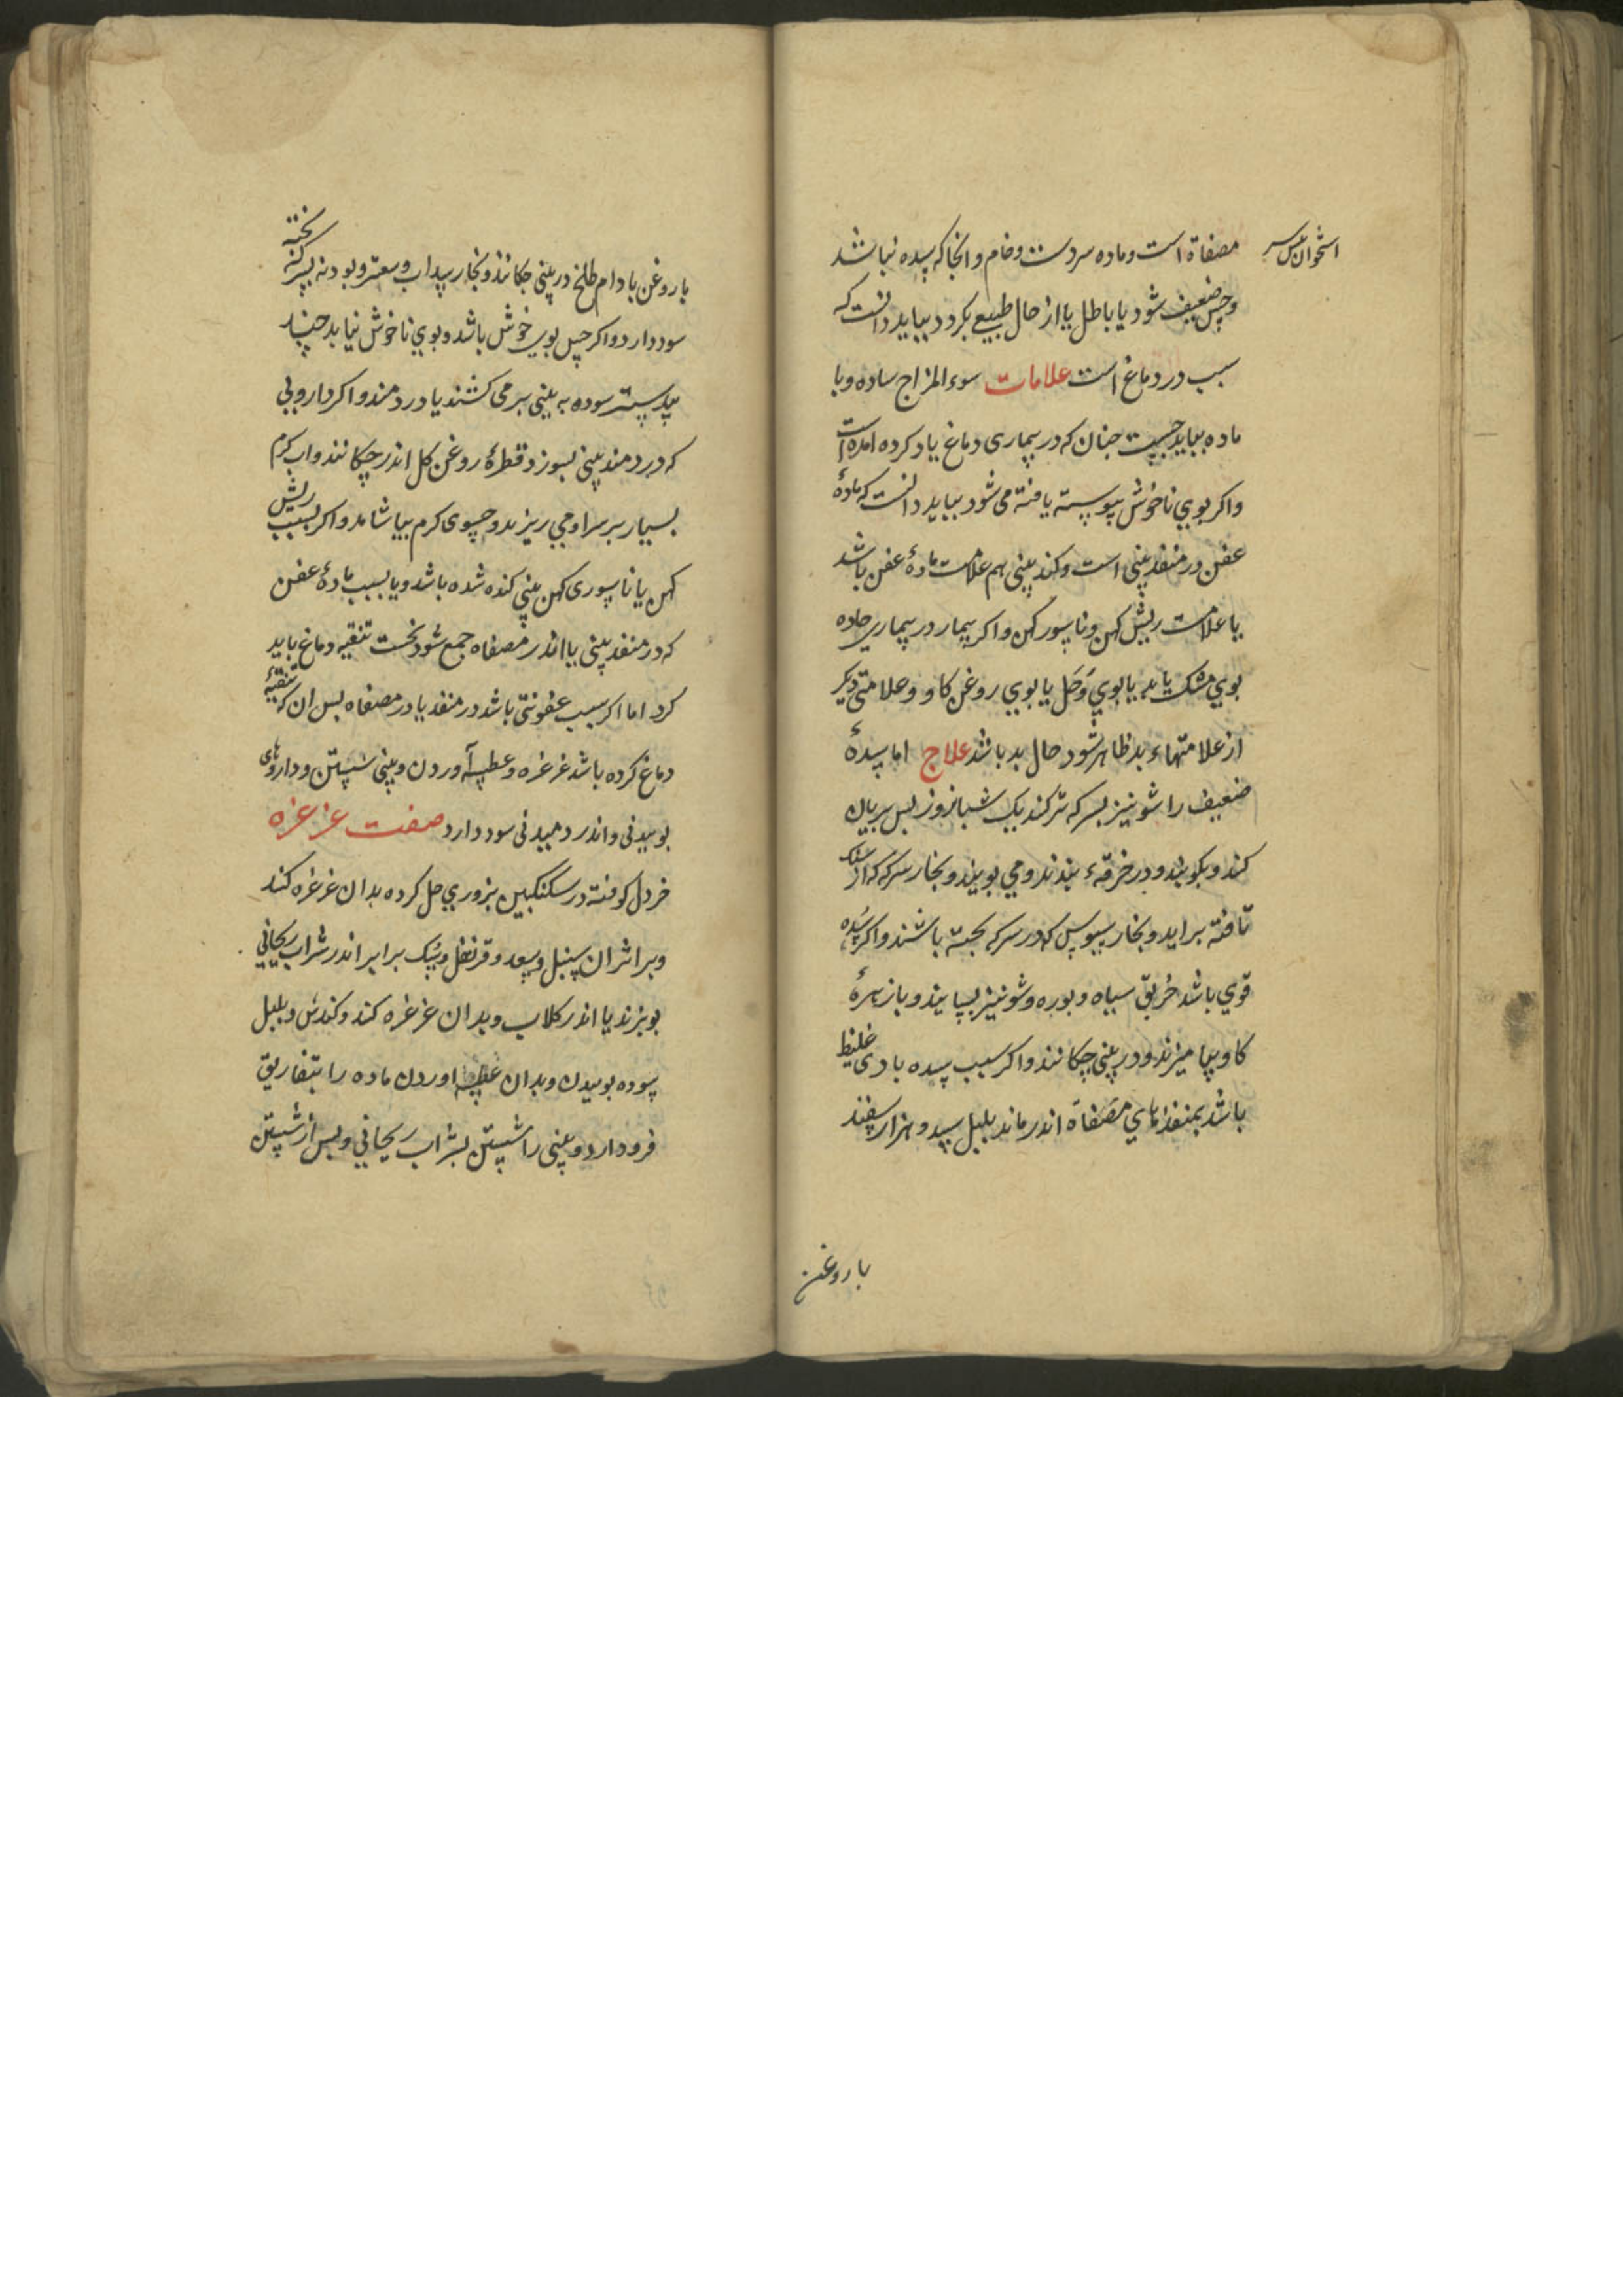 استخوان پس سر
مصفاة است و ماده سردست و خام و انجا که سده نباشد
و حس ضعیف شود یا باطل یا از حال طبیعی بکردد بباید دانست که
سبب در دماغ است علامات سوء المزاج ساده و با
ماده بباید جست جنان که در بیماری دماغ یاد کرده امده است
و اکر بوی ناخوش پیوسته یافته می شود بباید دانست که مادهٔ
عفن در منفذ بینی است و کند بینی هم علامت مادهٔ عفن باشد
یا علامت ریش کهن و ناسور کهن و اکر بیمار در بیماری حاده
بوی مشک یابد یا بوی وَحَل یا بوی روغن کاو و علامتی دیکر
از علامتهاء بد ظاهر شود حال بد باشد علاج اما سدهٔ
ضعیف را شونیز بسرکه تر کند یک شبانروز بس بریان
کند و بکوبند و در خرقهٔ بندند و می بویند و بخار سرکه که از سنک
تافته براید و بخار سبوس که در سرکه بخته باشند و اکر سُدّه
قوی باشد خُربق سیاه و بوره و شونیز بسایند و با زهرهٔ
کاو بیامیزند و در بینی چکانند و اکر سبب سده بادی غلیظ
باشد بمنفذهای مصَفاة اندر ماند بلبل سپید و هزار سفند
با روغن
با روغن بادام طلخ در بینی چکانند و بخار سداب و سعتر و بودنه بسرکه بخته
سود دارد و اکر حس بوی خوش باشد و بوی ناخوش نیابد جند
بیدستر سوده به بینی بر می کشند یا در دمند و اکر دارویی
که در دمند بینی بسوزد قطرهٔ روغن کل اندر چکانند و اب کرم
بسیار بر سر او می ریزند و حسوی کرم بیاشامد و اکر بسبب ریش
کهن یا ناسوری کهن بینی کنده شده باشد و یا بسبب مادهٔ عفن
که در منفذ بینی یا اندر مصفاه جمع شود نخست تنقیه دماغ باید
کرد اما اکر سبب عفونتی باشد در منفذ یا در مصفاه بس ان که تنقیهٔ
دماغ کرده باشد غرغره و عطسه آوردن و بینی شستن و داروهای
بوییدنی و اندر دمیدنی سود دارد صفت غرغره
خردل کوفته در سکنکبین بزوری حل کرده بدان غرغره کند
و بر اثر ان سنبل و سعد و قرنفل و سُک برابر اندر شراب ریحانی
بوبزند یا اندر کلاب و بدان غرغره کند و کندش و بلبل
سوده بوییدن و بدان عطسه اوردن ماده را بتفاریق
فرود ارد و بینی را شستن بشراب ریحانی و بس از شستن